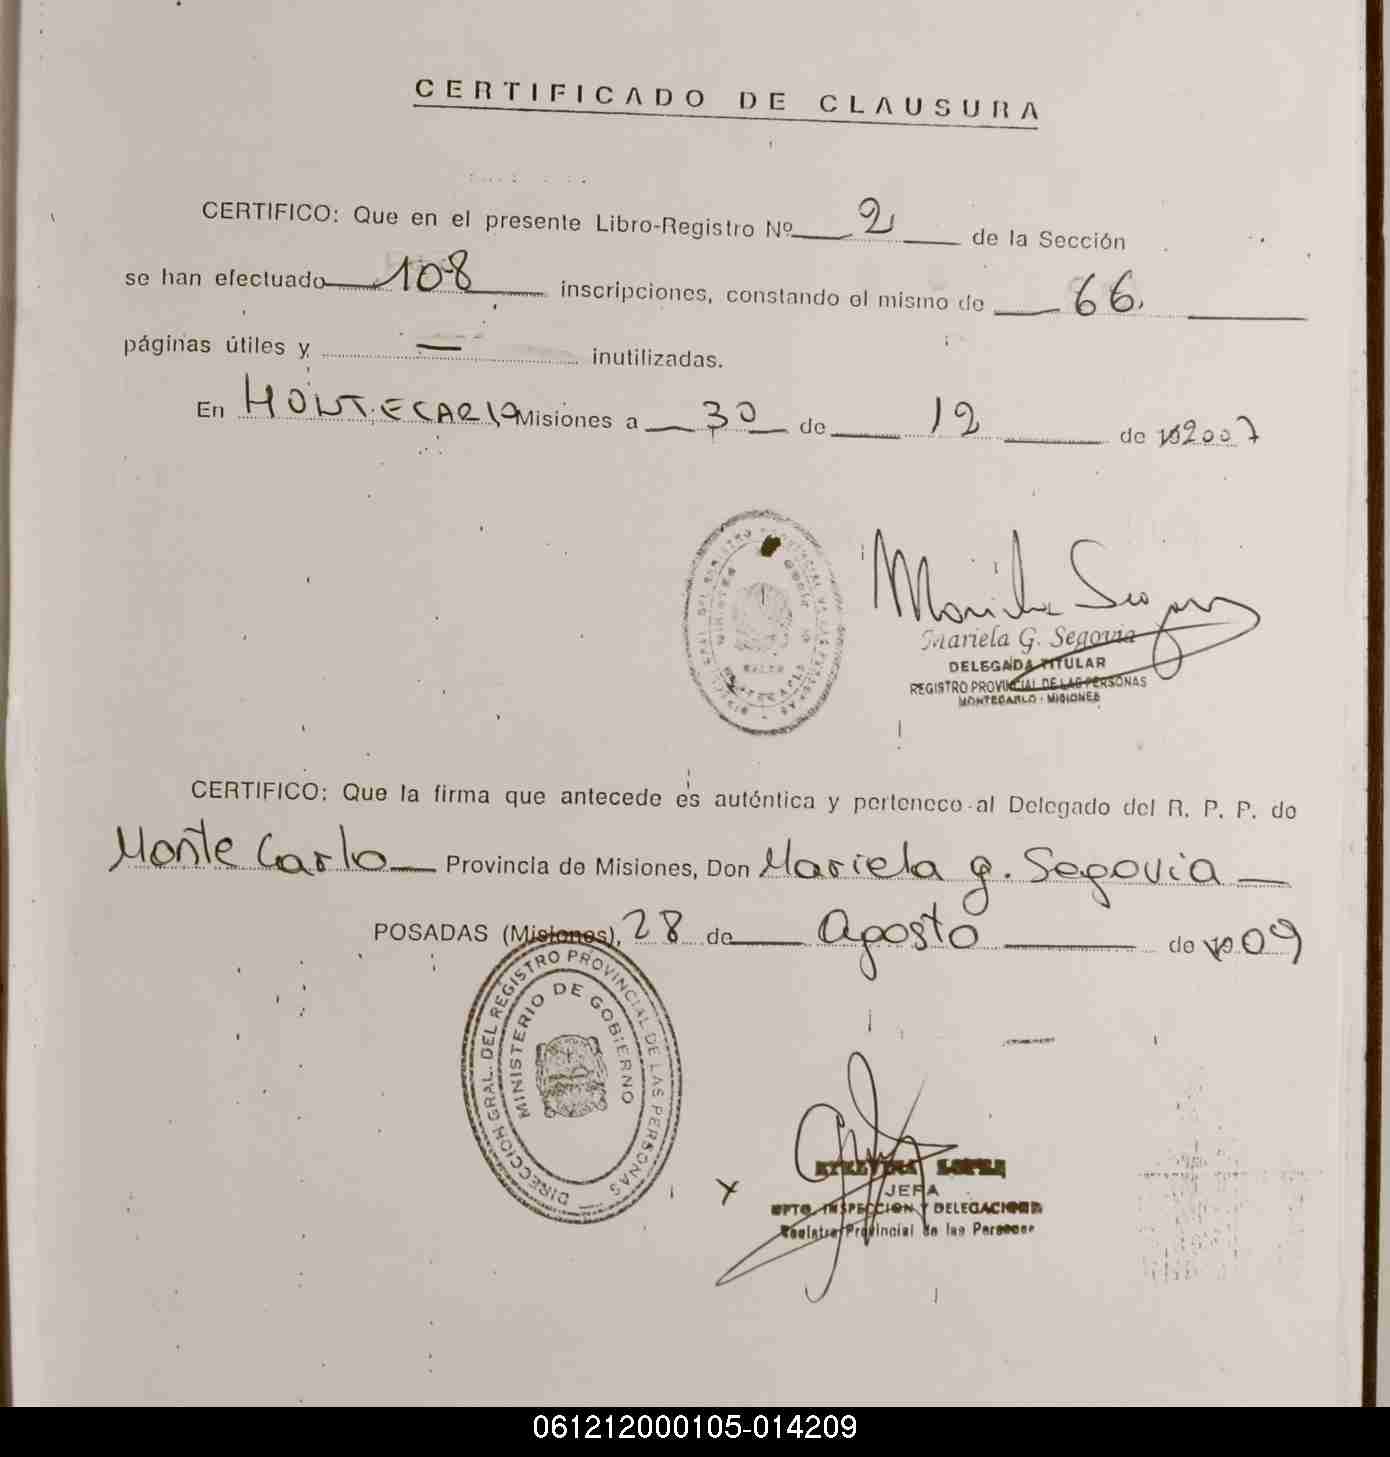 CERTIFICADO DE CLAUSURA
CERTIFICO: Que en el presente Libro-Registro Nº 2 de la Sección
se han efectuado 108 inscripciones, constando el mismo de 66.
páginas útiles y — inutilizadas.
En MONTECARLO Misiones a 30 de 12 de 192007
Mariela G. Segovia
DELEGADA TITULAR
REGISTRO PROVINCIAL DE LAS PERSONAS
MONTECARLO - MISIONES
CERTIFICO: Que la firma que antecede es auténtica y pertenece al Delegado del R. P. P. de
Monte Carlo Provincia de Misiones, Don Mariela g. Segovia
POSADAS (Misiones), 28 de Agosto de 09
DIRECCION GRAL. DEL REGISTRO PROVINCIAL DE LAS PERSONAS
MINISTERIO DE GOBIERNO
LOPEZ
JEFA
DPTO. INSPECCION Y DELEGACIONES
Registro Provincial de las Personas
061212000105-014209